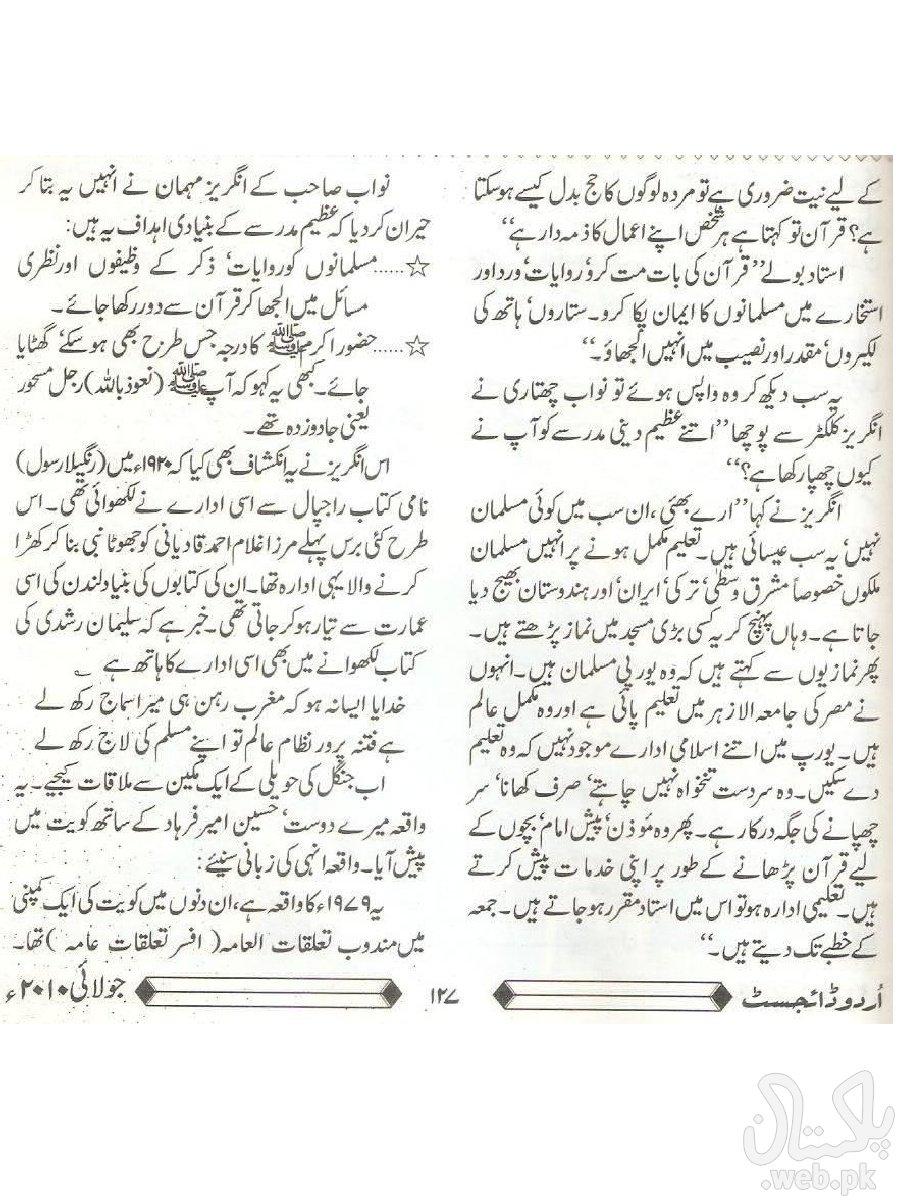 کے لیے نیت ضروری ہے تو مردہ لوگوں کا حج بدل کیسے ہوسکتا
ہے؟ قرآن تو کہتا ہے ہر شخص اپنے اعمال کا ذمہ دار ہے‘‘
استاد بولے’’قرآن کی بات مت کرو‘ روایات‘ ورد اور
استخارے میں مسلمانوں کا ایمان پکا کرو۔ ستاروں‘ ہاتھ کی
لکیروں‘ مقدر اور نصیب میں انہیں الجھاؤ۔‘‘
یہ سب دیکھ کر وہ واپس ہوئے تو نواب چھتاری نے
انگریز کلکٹر سے پوچھا’’اتنے عظیم دینی مدرسے کو آپ نے
کیوں چھپا رکھا ہے؟‘‘
انگریز نے کہا’’ارے بھئی، ان سب میں کوئی مسلمان
نہیں‘ یہ سب عیسائی ہیں۔ تعلیم مکمل ہونے پر انہیں مسلمان
ملکوں خصوصاً مشرق وسطیٰ‘ ترکی‘ ایران‘ اور ہندوستان بھیج دیا
جاتا ہے۔ وہاں پہنچ کر یہ کسی بڑی مسجد میں نماز پڑھتے ہیں۔
پھر نمازیوں سے کہتے ہیں کہ وہ یورپی مسلمان ہیں۔ انہوں
نے مصر کی جامعہ الازہر میں تعلیم پائی ہے اور وہ مکمل عالم
ہیں۔ یورپ میں اتنے اسلامی ادارے موجود نہیں کہ وہ تعلیم
دے سکیں۔ وہ سردست تنخواہ نہیں چاہتے‘ صرف کھانا‘ سر
چھپانے کی جگہ درکار ہے۔ پھر وہ مؤذن‘ پیش امام‘ بچوں کے
لیے قرآن پڑھانے کے طور پر اپنی خدمات پیش کرتے
ہیں۔ تعلیمی ادارہ ہو تو اس میں استاد مقرر ہو جاتے ہیں۔ جمعہ
کے خطبے تک دیتے ہیں۔‘‘
نواب صاحب کے انگریز مہمان نے انہیں یہ بتا کر
حیران کر دیا کہ عظیم مدرسے کے بنیادی اہداف یہ ہیں:
☆……مسلمانوں کو روایات‘ ذکر کے وظیفوں اور نظری
مسائل میں الجھا کر قرآن سے دور رکھا جائے۔
☆……حضور اکرم ﷺ کا درجہ جس طرح بھی ہو سکے‘ گھٹایا
جائے۔ کبھی یہ کہو کہ آپ ﷺ (نعوذ باللہ) رجل مسحور
یعنی جادو زدہ تھے۔
اس انگریز نے یہ انکشاف بھی کیا کہ ۱۹۲۰ء میں (رنگیلا رسول)
نامی کتاب راجپال سے اسی ادارے نے لکھوائی تھی۔ اس
طرح کئی برس پہلے مرزا غلام احمد قادیانی کو جھوٹا نبی بنا کر کھڑا
کرنے والا یہی ادارہ تھا۔ ان کی کتابوں کی بنیاد لندن کی اسی
عمارت سے تیار ہو کر جاتی تھی۔ خبر ہے کہ سلیمان رشدی کی
کتاب لکھوانے میں بھی اسی ادارے کا ہاتھ ہے
خدایا ایسا نہ ہو کہ مغرب رہن ہی میرا سماج رکھ لے
ہے فتنہ پرور نظام عالم تو اپنے مسلم کی لاج رکھ لے
اب جنگل کی حویلی کے ایک مکین سے ملاقات کیجیے۔ یہ
واقعہ میرے دوست‘ حسین امیر فرہاد کے ساتھ کویت میں
پیش آیا۔ واقعہ انہی کی زبانی سنیئے:
یہ ۱۹۷۹ء کا واقعہ ہے، ان دنوں میں کویت کی ایک کمپنی
میں مندوب تعلقات العامہ (افسر تعلقات عامہ) تھا۔
اُردو ڈائجسٹ ۱۲۷ جولائی ۲۰۱۰ء
پاکستان
.web.pk